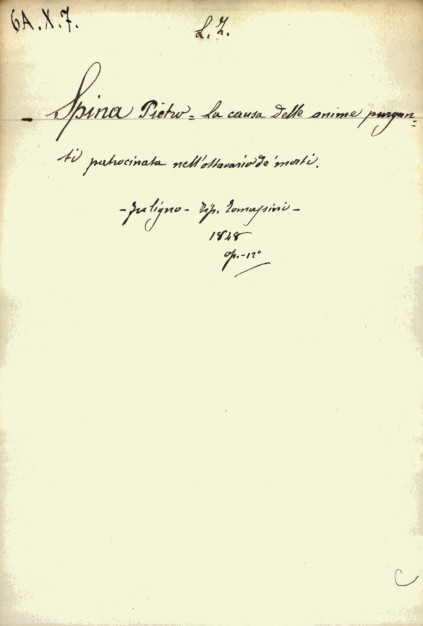 6A.X.7.
L.Z.
- Spina Pietro = La causa delle anime purgan=
ti patrocinata nell'ottavario de' morti.
- Fuligno - Tip. Tomassini -
1848
op.-12°
C